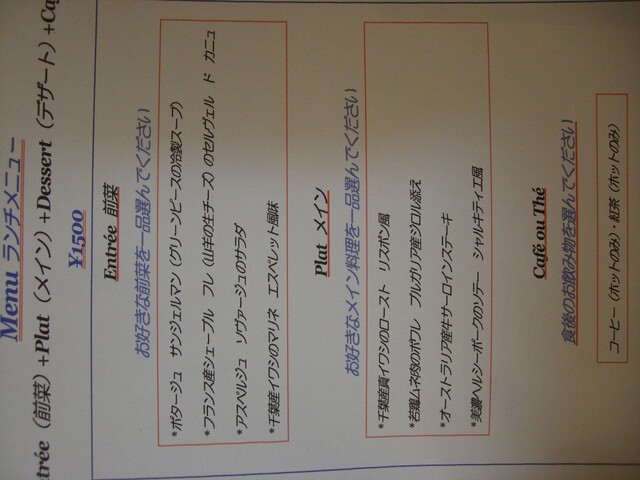 Menu ランチメニュー
trée（前菜）+Plat（メイン）+Dessert（デザート）+Ca
¥1500
Entrée 前菜
お好きな前菜を一品選んでください
*ポタージュ サンジェルマン（グリーンピースの冷製スープ）
*フランス産シェーブル フレ（山羊の生チーズ）のセルヴェル ド カニュ
*アスペルジュ ソヴァージュのサラダ
*千葉産イワシのマリネ エスペレット風味
Plat メイン
お好きなメイン料理を一品選んでください
*千葉産真イワシのロースト リスボン風
*若鶏ムネ肉のポワレ ブルガリア産ジロル添え
*オーストラリア産牛サーロインステーキ
*美濃ヘルシーポークのソテー シャルキティエ風
Café ou Thé
食後のお飲み物を選んでください
コーヒー（ホットのみ）・紅茶（ホットのみ）